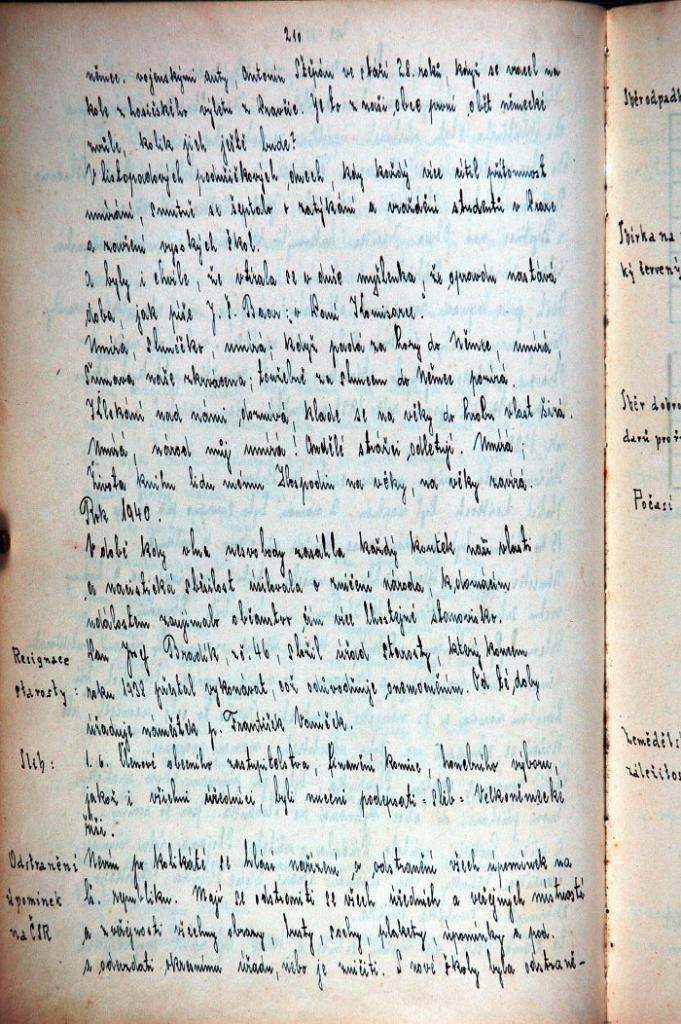 210
němec. vojenskými auty, Antonín Štěpán ve stáří 28. roků, když se vracel na
kole z hosického výletu z Pravčic. Je to z naší obce první oběť německé
zvůle, kolik jich ještě bude?
V listopadových podmíškových dnech, kdy každý více cítil přítomnost
umírání smutně se šeptalo o zatýkání a vraždění studentů v Praze
a zavření vysokých škol.
A byly i chvíle, že vtírala se v duše myšlenka, že opravdu nastává
doba, jak píše J. Š. Baar: v Paní Komisarce.
Umírá, slunéčko, umírá, když padá za hory do Němec, umírá,
Šumava naše zkrvácená; toužebně za sluncem do Němec pozírá.
Klekání nad námi doznívá, klade se na věky do hrobu vlast širá.
Umírá, národ můj umírá! Andělé strážci odletují. Umírá,
Života knihu lidu mému Hospodin na věky, na věky zavírá.
Rok 1940.
V době kdy vlna nesvobody zasáhla každý koutek naší vlasti
a nacistická sběsilost usilovala o zničení národa, k domácím
událostem zaujímalo občanstvo čím více lhostejné stanovisko.
Resignace
starosty:
Pan Josef Bradík, č. 46, složil úřad starosty, který koncem
roku 1939 přestal vykonávat, což odůvodňuje onemocněním. Od té doby
úřaduje náměstek p. František Vaníček.
Slib:
1. 6. Členové obecního zastupitelstva, finanční komise, honebního výboru,
jakož i všichni úředníci, byli nuceni podepsati = slib = Velkoněmecké
říši.
Odstranění
upomínek
na ČSR
Nevím po kolikáté se hlásí nařízení, o odstranění všech upomínek na
čs. republiku. Mají se odstraniti se všech úředních a veřejných místností
a z veřejnosti všechny obrazy, busty, sochy, plakety, upomínky a pod.
a odevzdati okresnímu úřadu, nebo je zničiti. S nové školy byla odstraně-
Sběr odpadk
Sbírka na
ký červený
Sběr dobro
darů pro
Počasí
Zemědělsk
záležitos